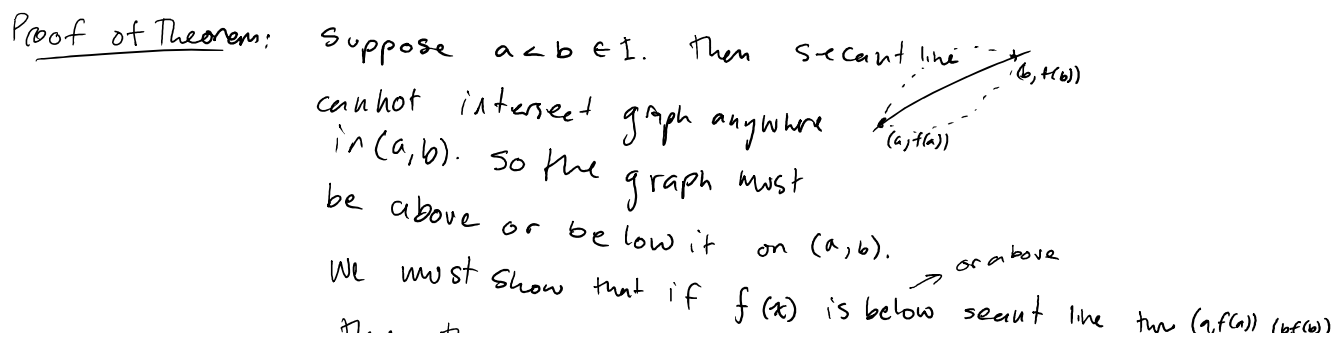 Proof of Theorem: Suppose a < b ∈ I. Then secant line
(b, f(b))
cannot intersect graph anywhere
(a, f(a))
in (a, b). So the graph must
be above or below it on (a, b).
or above
We must show that if f(x) is below secant line thru (a, f(a)) (b f(b))